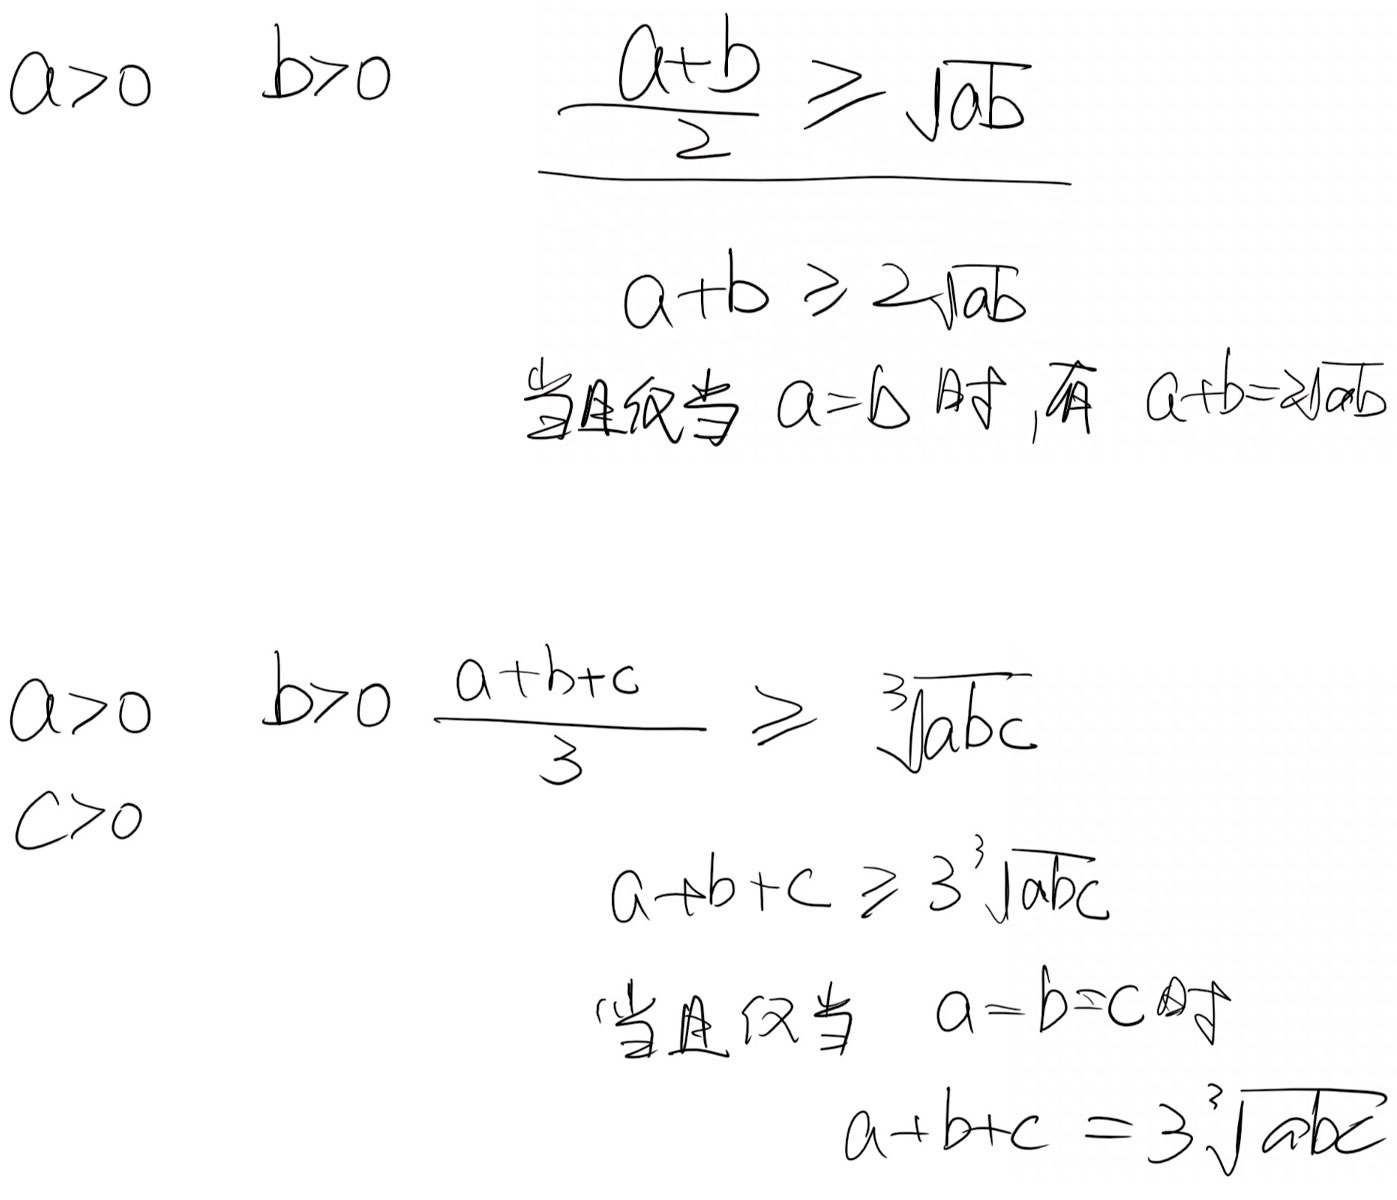 a>0 b>0 (a+b)/2 ≥ √ab
a+b ≥ 2√ab
当且仅当 a=b 时,有 a+b=2√ab
a>0 b>0 (a+b+c)/3 ≥ ³√abc
c>0
a+b+c ≥ 3³√abc
当且仅当 a=b=c时
a+b+c = 3³√abc